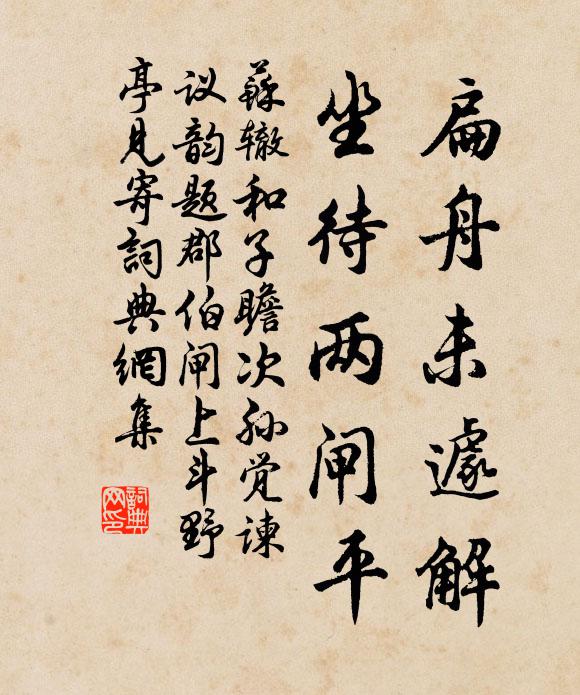 扁舟未遽解
坐待两闸平
蘇辙和子瞻次孙觉谏
议韵题郡伯闸上斗野
亭见寄詞典網集
詞典
网印